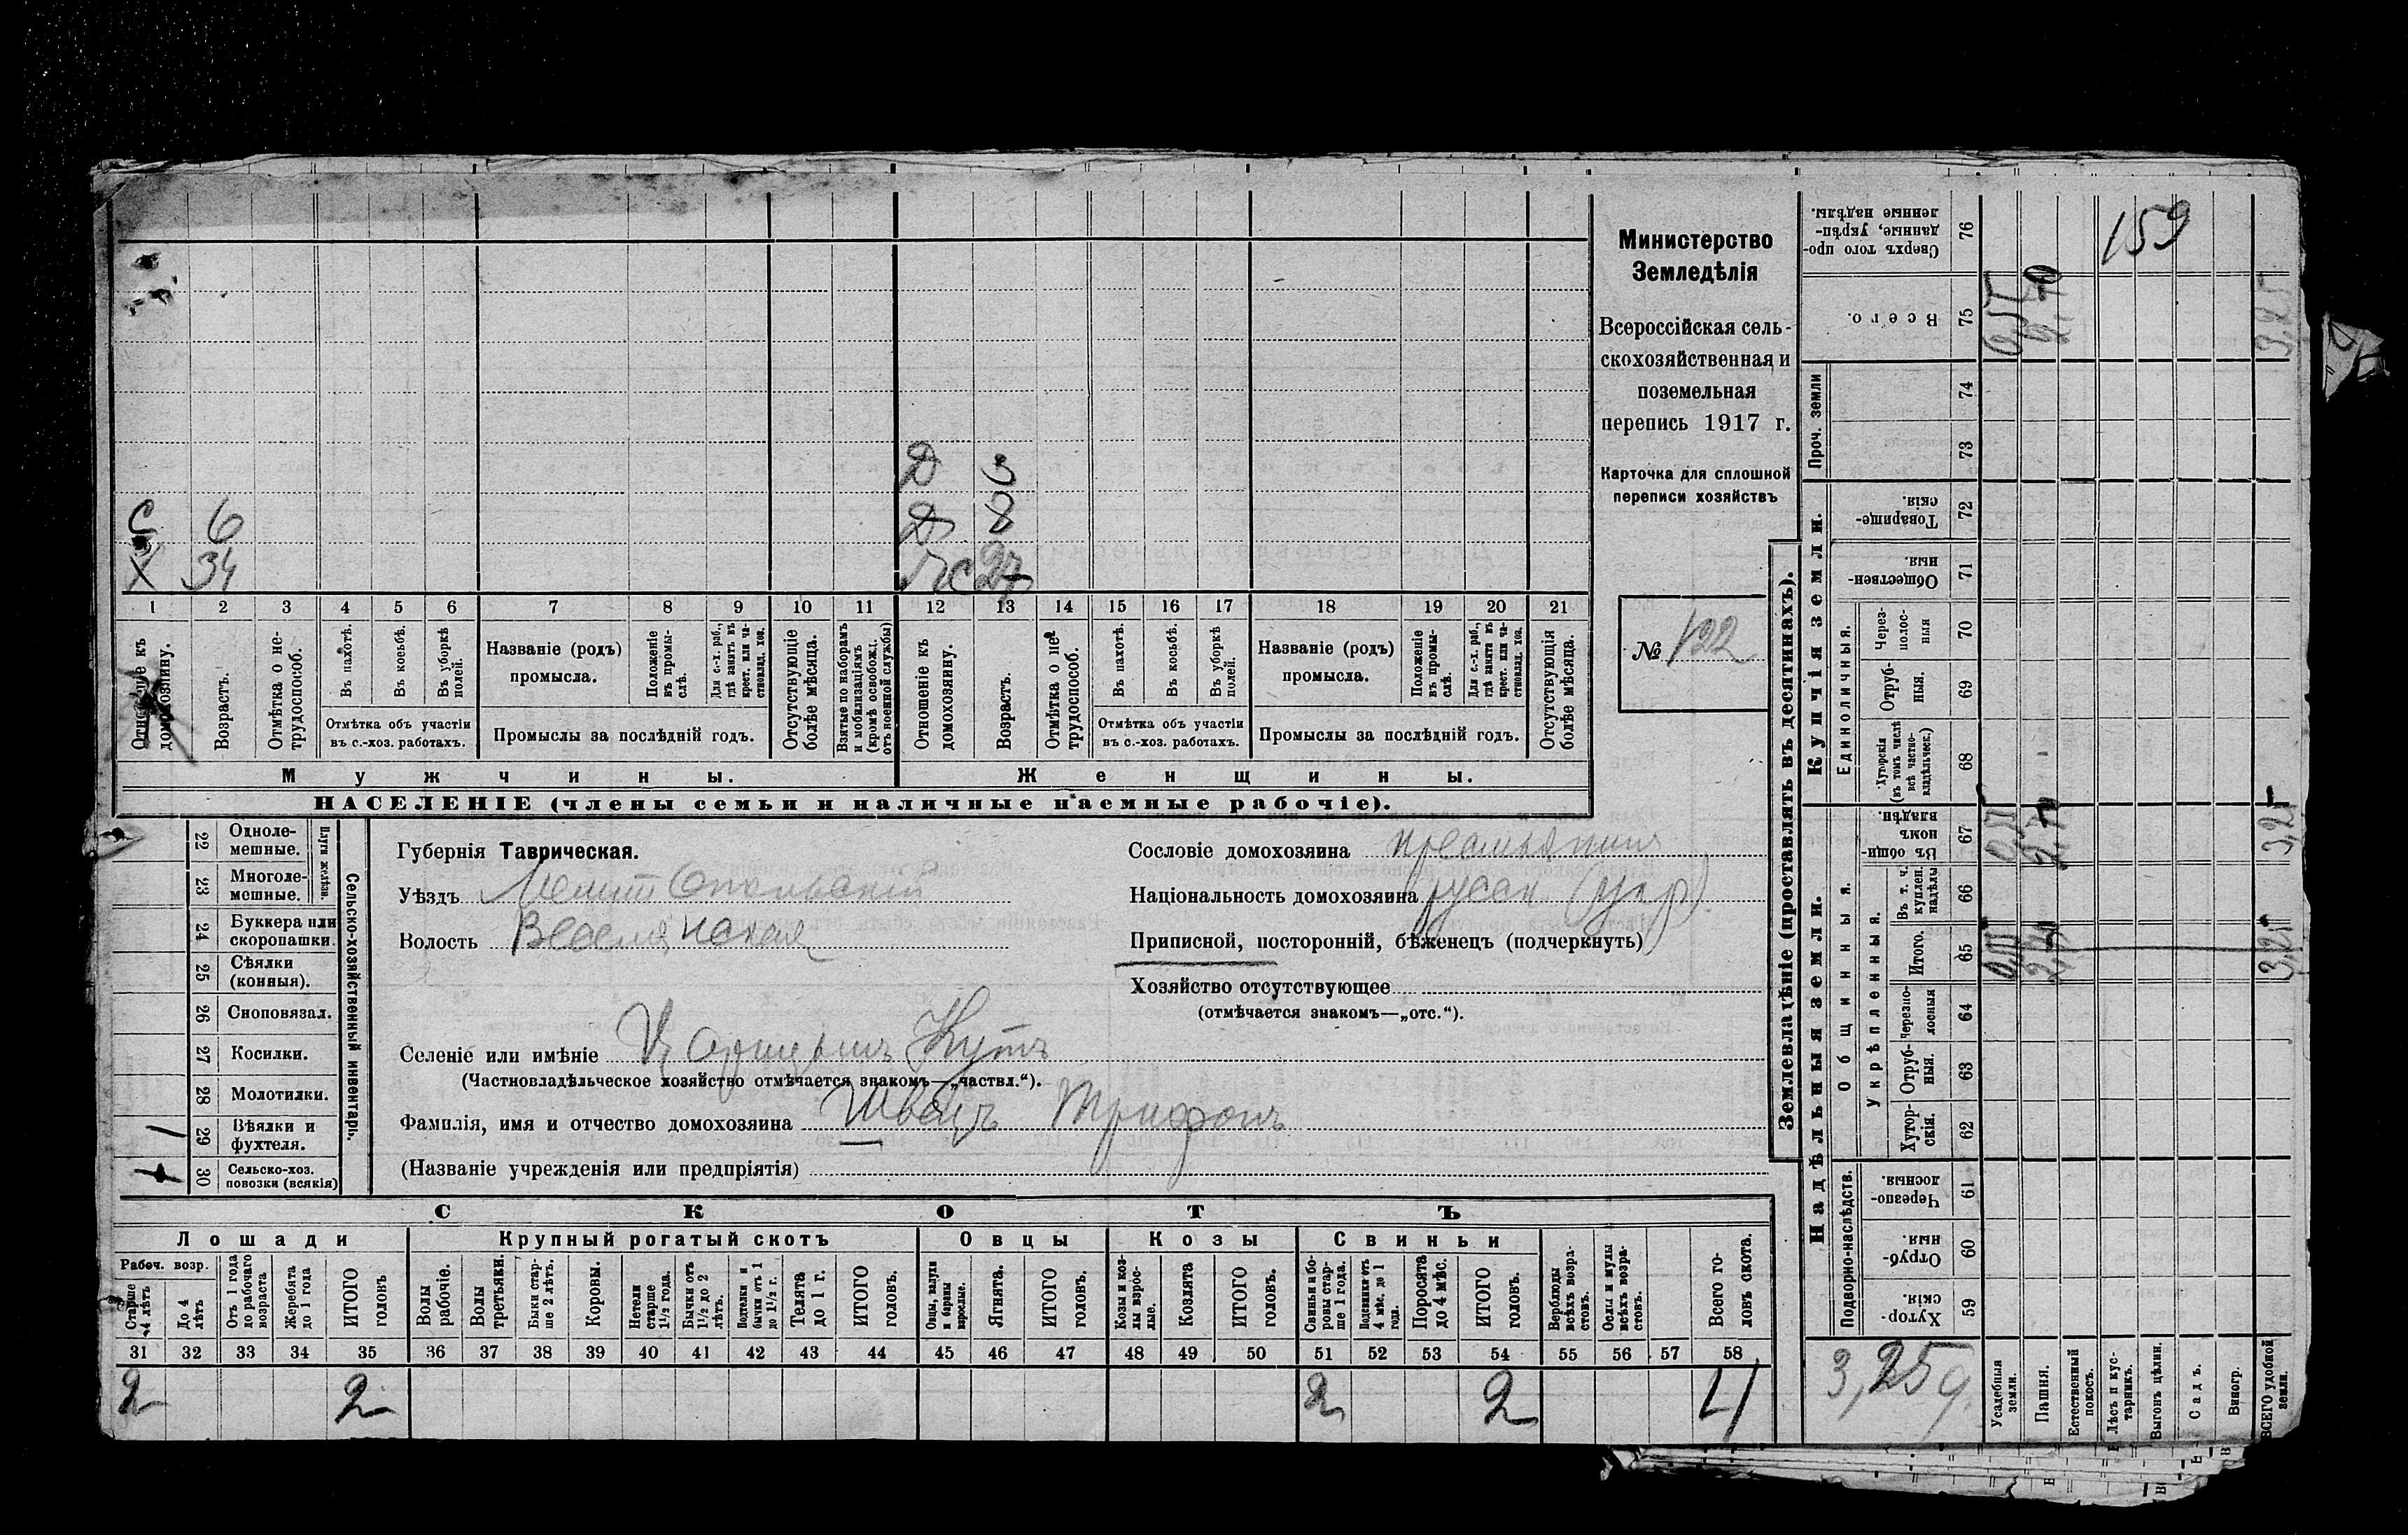 Министерство
Земледѣлія
Всероссійская сель-
скохозяйственная и
поземельная
перепись 1917 г.
Карточка для сплошной
переписи хозяйствъ
№ 122
Д 3
Д 8
С 6
Ж 27
Х 34
1 2 3 4 5 6 7 8 9 10 11 12 13 14 15 16 17 18 19 20 21
Отношеніе къ домохозяину.
Возрастъ.
Отмѣтка о не-
трудоспособ.
Въ пахотѣ.
Въ косьбѣ.
Въ уборкѣ
полей.
Отмѣтка объ участіи
въ с.-хоз. работахъ.
Названіе (родъ)
промысла.
Положеніе
въ промы-
слѣ.
Для с.-х. раб.,
гдѣ занятъ въ
крест. или ча-
стновлад. хоз.
Промыслы за послѣдній годъ.
Отсутствующіе
болѣе мѣсяца.
Взятые по наборамъ
и мобилизаціямъ
(кромѣ освобожд.
отъ военной службы)
Отношеніе къ
домохозяину.
Возрастъ.
Отмѣтка о не-
трудоспособ.
Въ пахотѣ.
Въ косьбѣ.
Въ уборкѣ
полей.
Отмѣтка объ участіи
въ с.-хоз. работахъ.
Названіе (родъ)
промысла.
Положеніе
въ промы-
слѣ.
Для с.-х. раб.,
гдѣ занята въ
крест. или ча-
стновлад. хоз.
Промыслы за послѣдній годъ.
Отсутствующія
болѣе мѣсяца.
Мужчины.
Женщины.
НАСЕЛЕНІЕ (члены семьи и наличные наемные рабочіе).
Сельско-хозяйственный инвентарь.
Плуги желѣзн.
22 Одноле-
мешные.
23 Многоле-
мешные.
24 Буккера или
скоропашки.
25 Сѣялки
(конныя).
26 Сноповязал.
27 Косилки.
28 Молотилки.
1 29 Вѣялки и
фухтеля.
1 30 Сельско-хоз.
повозки (всякія)
Губернія Таврическая.
Уѣздъ Мелитопольскій
Волость Веселянская
Селеніе или имѣніе Царицынъ Кутъ
(Частновладѣльческое хозяйство отмѣчается знакомъ—„частвл.“).
Фамилія, имя и отчество домохозяина Швецъ Трифонъ
(Названіе учрежденія или предпріятія)
Сословіе домохозяина крестьянинъ
Національность домохозяина русск (укр).
Приписной, посторонній, бѣженецъ (подчеркнуть)
Хозяйство отсутствующее
(отмѣчается знакомъ—„отс.“).
СКОТЪ
Лошади
Рабоч. возр.
Старше
4 лѣтъ
До 4
лѣтъ
Отъ 1 года
до рабочаго
возраста
Жеребята
до 1 года
ИТОГО
головъ
Крупный рогатый скотъ
Волы
рабочіе.
Волы
третьяки.
Быки стар-
ше 2 лѣтъ.
Коровы.
Нетели
старше
1½ года.
Бычки отъ
1½ до 2
лѣтъ.
Подтелки и
бычки отъ 1
до 1½ г.
Телята
до 1 г.
ИТОГО
головъ.
Овцы
Овцы, валухи
и бараны
взрослые.
Ягнята.
ИТОГО
головъ.
Козы
Козы и коз-
лы взрос-
лые.
Козлята
ИТОГО
головъ.
Свиньи
Свиньи и бо-
ровы стар-
ше 1 года.
Подсвинки отъ
4 мѣс. до 1
года.
Поросята
до 4 мѣс.
ИТОГО
головъ.
Верблюды
всѣхъ возра-
стовъ.
Ослы и мулы
всѣхъ возра-
стовъ.
Всего го-
ловъ скота.
31 32 33 34 35 36 37 38 39 40 41 42 43 44 45 46 47 48 49 50 51 52 53 54 55 56 57 58
2 2 2 2 4
Землевладѣніе (проставлять въ десятинахъ).
Надѣльныя земли.
Купчія земли.
Проч. земли
Подворно-наслѣдств.
Общинныя.
Укрѣпленныя.
Единоличныя.
Хутор-
скія. 59
Отруб-
ныя. 60
Черезпо-
лосныя. 61
Хутор-
скія. 62
Отруб-
ныя. 63
Черезпо-
лосныя 64
Итого. 65
Въ т. ч.
куплен.
надѣлы 66
Въ общи
номъ
владѣн. 67
Хуторскія
(въ томъ числѣ
всѣ частно-
владѣльческ.) 68
Отруб-
ныя. 69
Через-
полос-
ныя 70
Обществен-
ныя 71
Товарище-
скія. 72
73
74
Всего. 75
Сверхъ того про-
данные, укрѣп-
ленные надѣлы. 76
Усадебныя
земли.
Пашня.
Естественный
покосъ.
Лѣсъ и кус-
тарникъ.
Выгонъ цѣлин.
Садъ.
Виногр.
ВСЕГО удобной
земли.
159
3,25